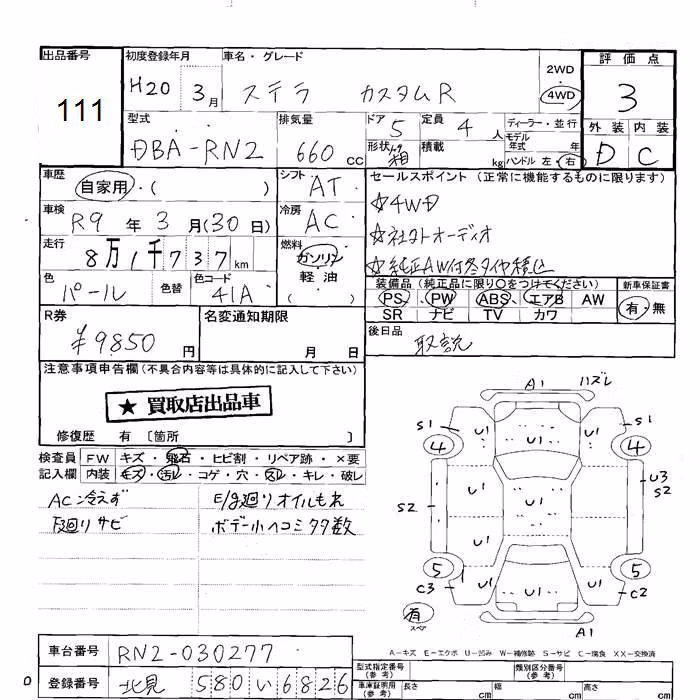 出品番号
111
初度登録年月
H20 3月
車名・グレード
ステラ カスタムR
2WD
・
4WD
評価点
3
外装 内装
D C
型式
DBA-RN2
排気量
660cc
ドア 5
定員 4人
形状 箱
積載 kg
ディーラー・並行
モデル年式 年
ハンドル 左・右
車歴
自家用・( )
シフト AT
車検
R9年3月(30日)
冷房 AC
走行
8万1千737km
燃料
ガソリン
軽油
( ・ )
色
パール
色替
色コード
41A
セールスポイント(正常に機能するものに限ります)
☆4WD
☆社外オーディオ
☆純正AW付冬タイヤ積込
装備品(純正品に限り○をつけてください)
PS・PW・ABS・エアB・AW
SR・ナビ・TV・カワ
新車保証書
有・無
R券
¥9850円
名変通知期限
月 日
後日品
取説
注意事項申告欄(不具合内容等は具体的に記入して下さい)
★ 買取店出品車
修復歴 有 〔箇所 〕
検査員記入欄
FW キズ・飛石・ヒビ割・リペア跡・×要
内装 キズ・汚レ・コゲ・穴・スレ・キレ・破レ
AC冷えず
E/g廻りオイルもれ
下廻りサビ
ボデー小ヘコミ多数
A1 ハズレ
S1 U1 U1 S1
4 4
U1
U3
S2
S2 U1 U1 U1
5 5
C3 U1 U1 U1 C2
有
スペア
A1
A-キズ E-エクボ U-凹み W-補修跡 S-サビ C-腐食 XX-交換済
車台番号 RN2-030277
登録番号 北見 580 い 6826
型式指定番号(参考)
類別区分番号(参考)
車庫証明用(参考) 長さ cm 幅 cm 高さ cm